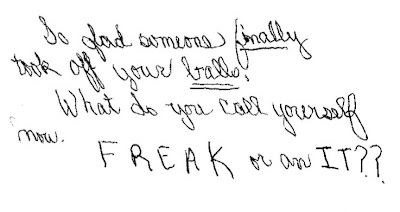 So glad someone finally
took off your balls!
What do you call yourself
now.
FREAK or an IT??